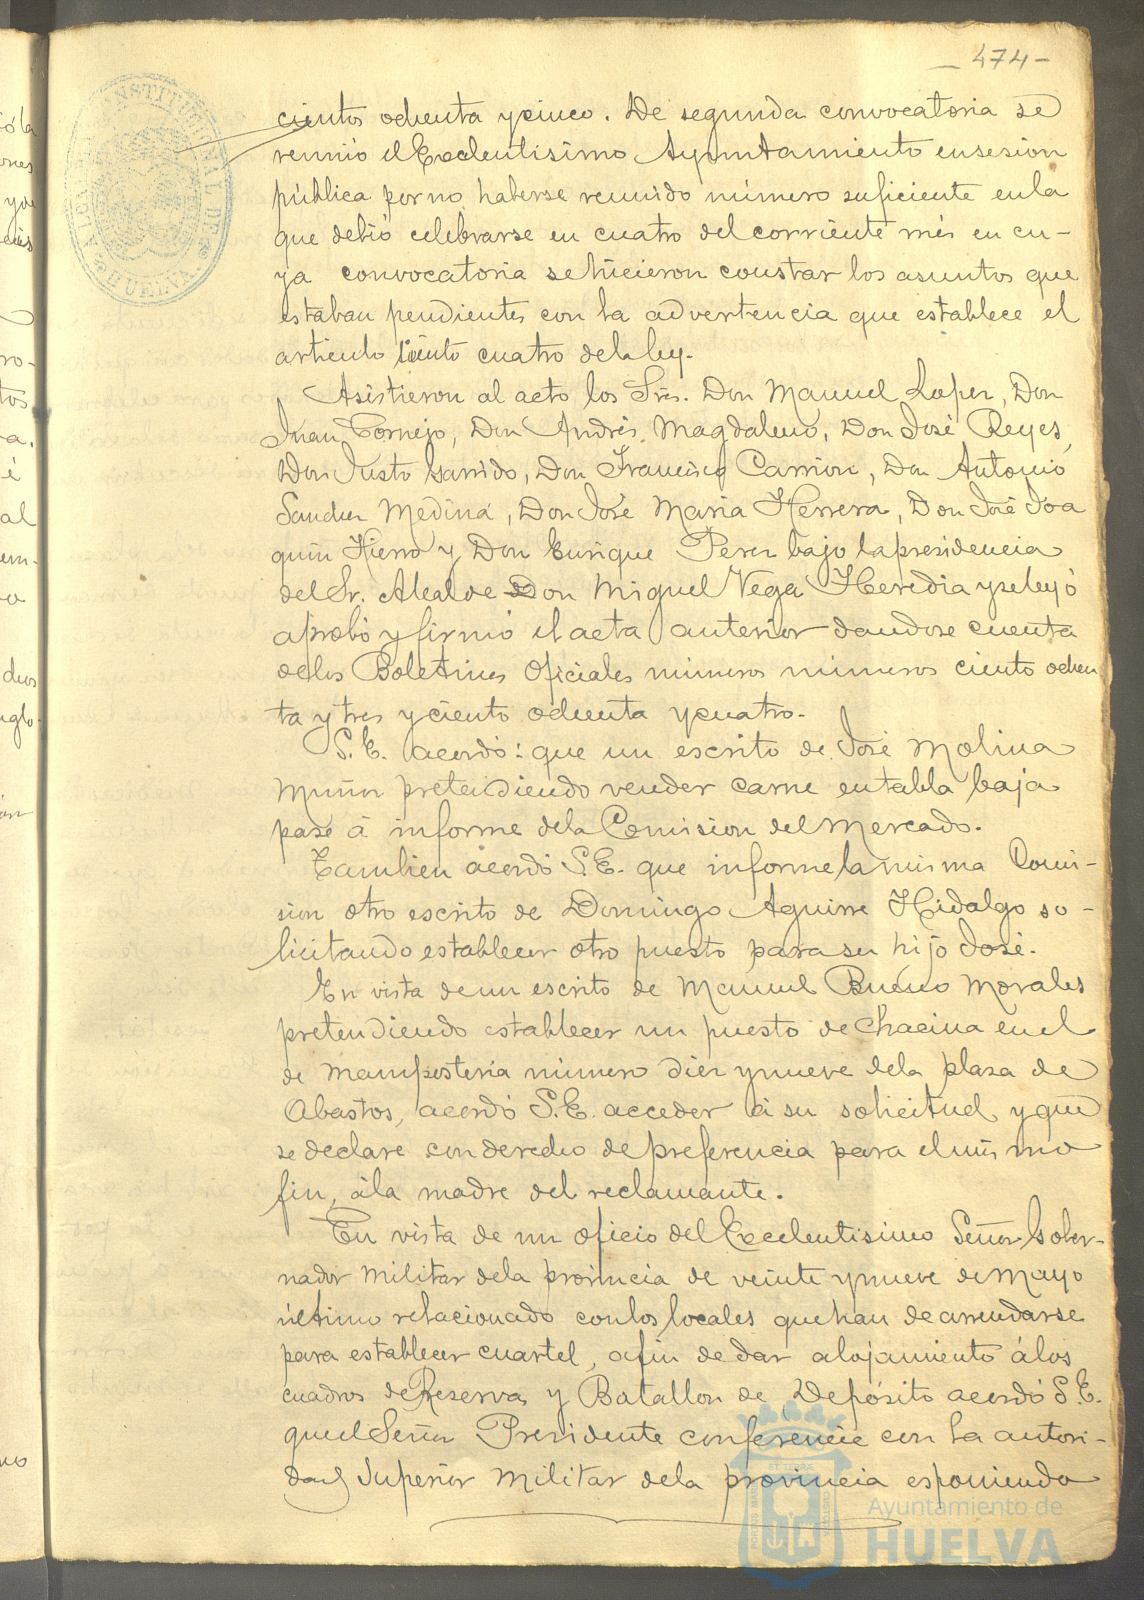 — 474 —
cientos ochenta y cinco. De segunda convocatoria se
reunió el Excelentisimo Ayuntamiento en sesion
pública por no haberse reunido número suficiente en la
que debió celebrarse en cuatro del corriente mes en cu-
ya convocatoria se hicieron constar los asuntos que
estaban pendientes con la advertencia que establece el
articulo ciento cuatro de la ley.
Asistieron al acto los Sres. Don Manuel Lopez, Don
Juan Cornejo, Don Andrés Magdaleno, Don José Reyes,
Don Justo Garrido, Don Francisco Carrion, Don Antonio
Sanchez Medina, Don José Maria Herrera, Don José Joa
quin Hierro y Don Enrique Perez bajo la presidencia
del Sr. Alcalde Don Miguel Vega Heredia y se leyó
aprobó y firmó el acta anterior dandose cuenta
de los Boletines Oficiales numeros numeros ciento ochen
ta y tres y ciento ochenta y cuatro.
S. E. acordó: que un escrito de José Molina
Muñoz pretendiendo vender carne en tabla baja
pase á informe de la Comision del Mercado.
Tambien acordó S. E. que informe la misma Comi-
sion otro escrito de Domingo Aguirre Hidalgo so-
licitando establecer otro puesto para su hijo José.
En vista de un escrito de Manuel Bueno Morales
pretendiendo establecer un puesto de chacina en el
de mamposteria número diez y nueve de la plaza de
Abastos, acordó S. E. acceder á su solicitud y que
se declare con derecho de preferencia para el mismo
fin, á la madre del reclamante.
En vista de un oficio del Excelentisimo Señor Gober-
nador Militar de la provincia de veinte y nueve de Mayo
último relacionado con los locales que han de arrendarse
para establecer cuartel, a fin de dar alojamiento á los
cuadros de Reserva y Batallon de Depósito acordó S. E.
que el Señor Presidente conferencie con la autori-
dad Superior Militar de la provincia esponiendo
Ayuntamiento de
HUELVA